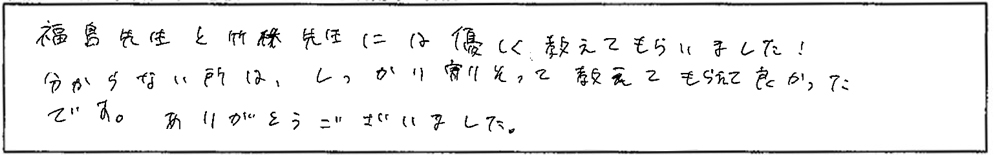 福島先生と竹林先生には優しく教えてもらいました!
分からない所は、しっかり寄りそって教えてもらえて良かった
です。ありがとうございました。